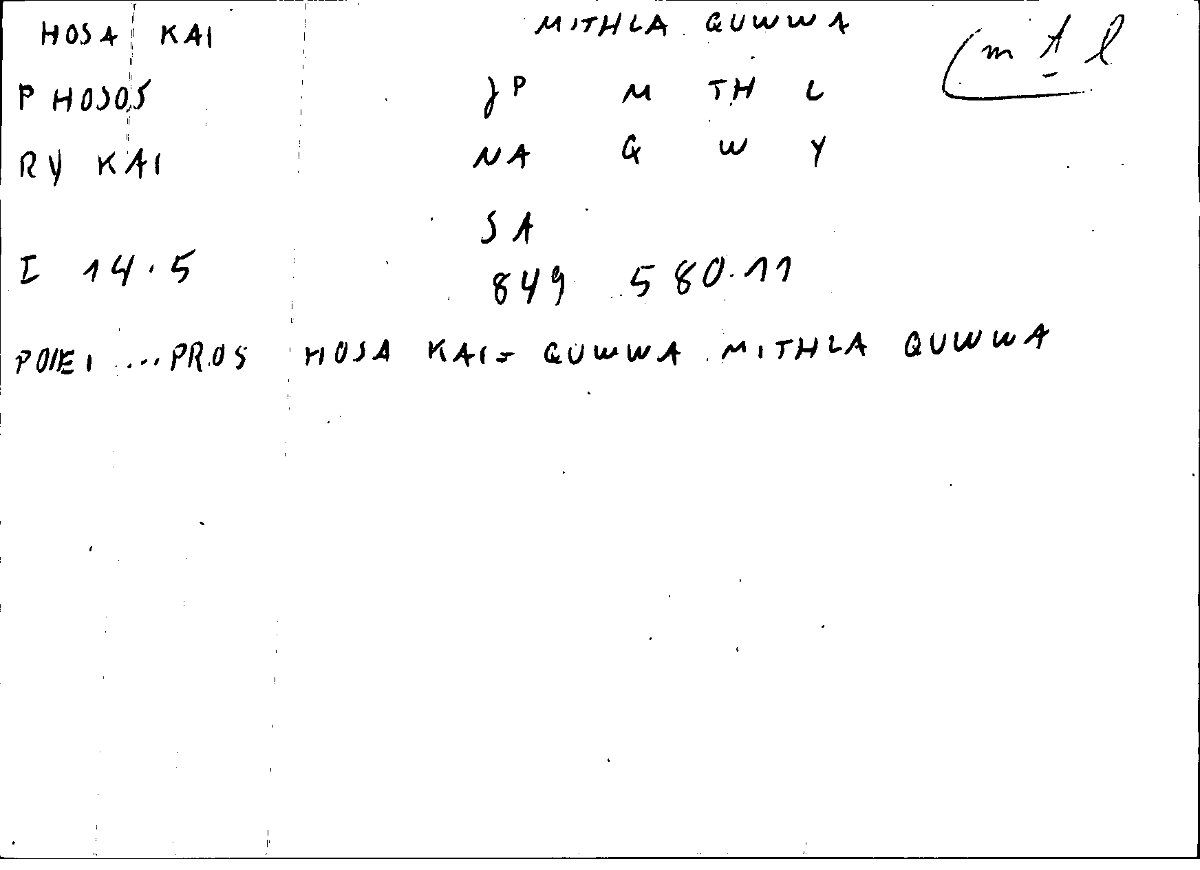 HOSA KAI MITHLA QUWWA
(m t l
P HOSOS JP M TH L
RY KAI NA Q W Y
SA
I 14.5 849 580.11
POIEI ... PROS HOSA KAI = QUWWA MITHLA QUWWA